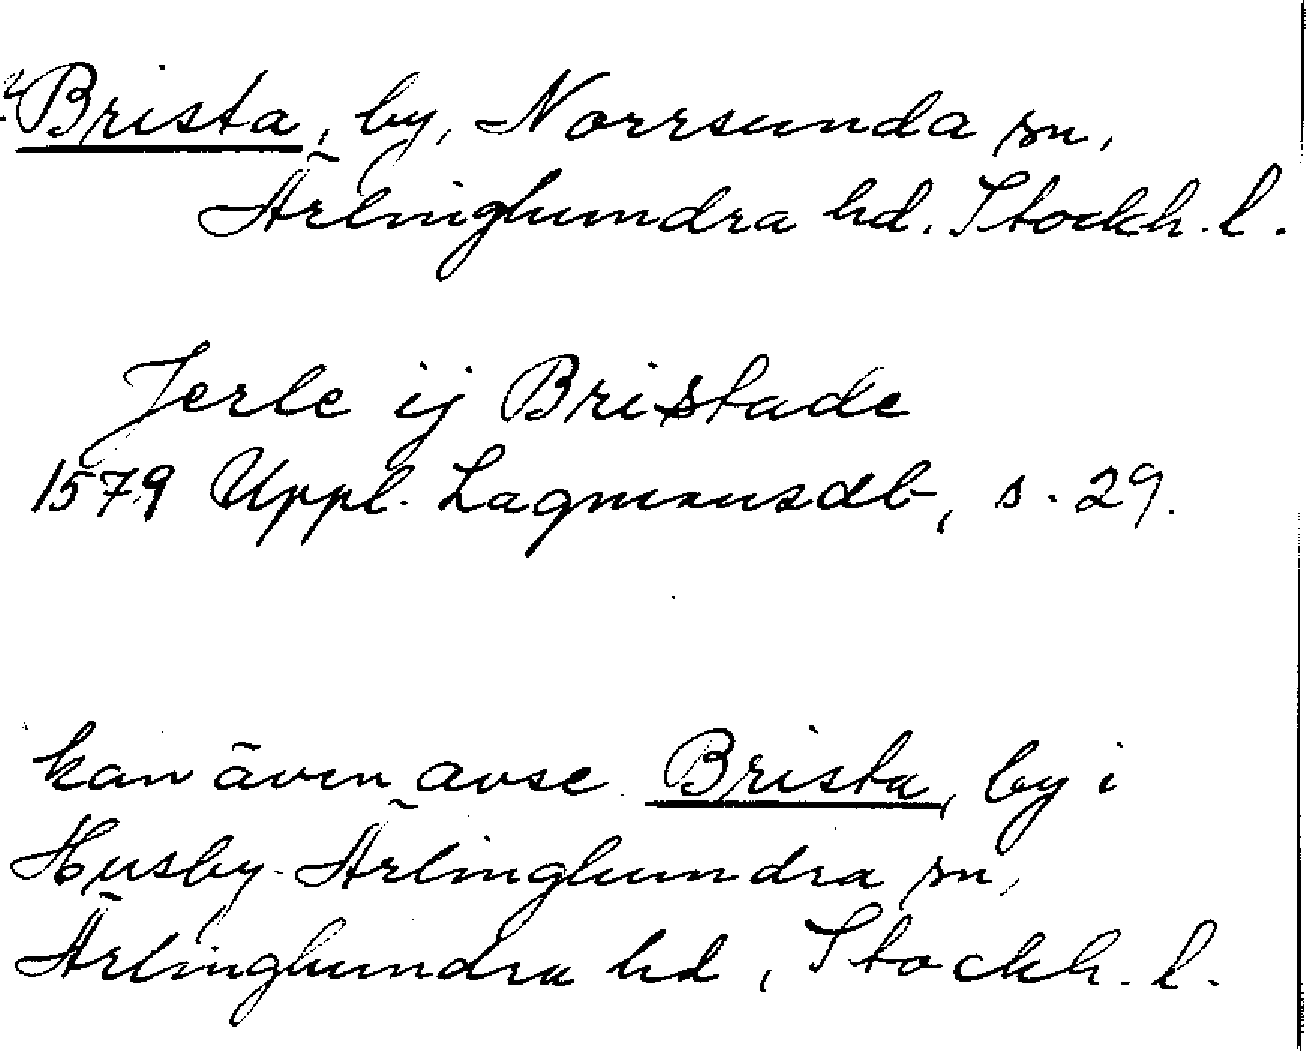 Brista, by, Norrsunda sn,
Ärlinghundra hd. Stockh. l.
Jerle ij Bristade
1579 Uppl. Lagmansdb, s. 29.
kan även avse Brista, by i
Husby-Ärlinghundra sn,
Ärlinghundra hd, Stockh. l.